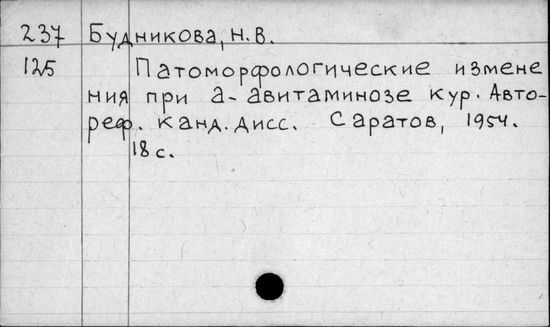 237 Будникова, Н.В.
125 Патоморфологические измене
ния при а-авитаминозе кур. Авто-
реф. канд. дисс. Саратов, 1954.
18 с.